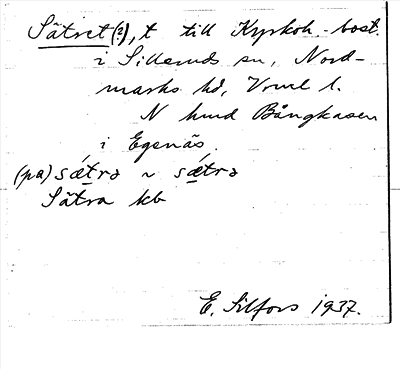 Sätret (?), t till Kyrkoh.-bost.
i Silleruds sn, Nord-
marks hd, Vrml l.
N hund Bångkasen
i Egenäs.
(pa) sǽtrə ~ sǽtrə
Sätra kb
E. Silfors 1937.